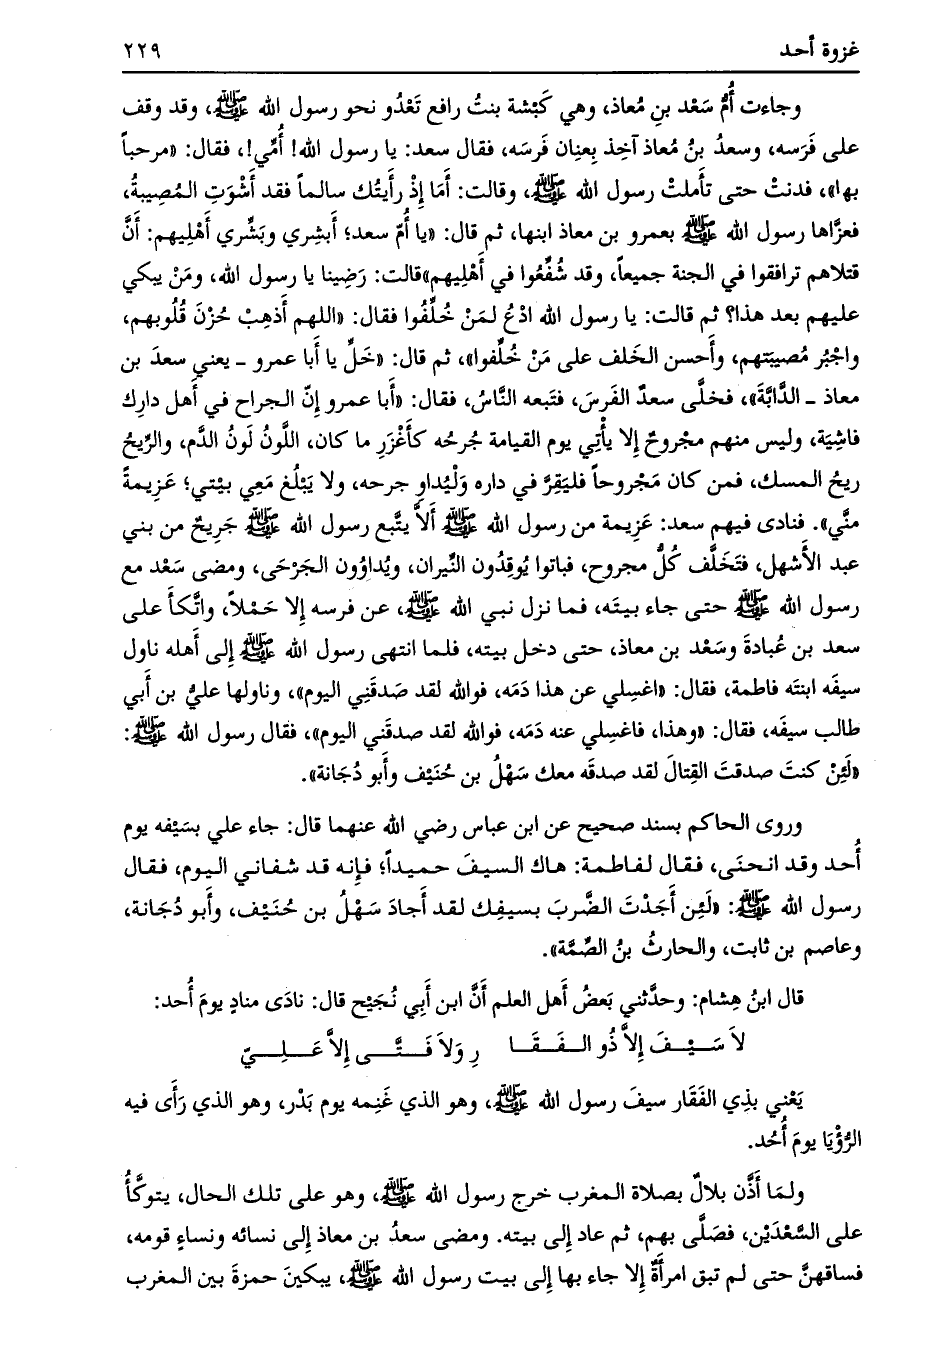 غزوة أحد ٢٢٩
وجاءت أُمُّ سَعْد بنِ مُعاذ، وهي كَبْشة بنتُ رافع تَعْدُو نحو رسول الله ﷺ، وقد وقف
على فَرَسه، وسعدُ بنُ مُعاذ آخِذ بِعنِان فَرسَه، فقال سعد: يا رسول الله! أُمِّي!، فقال: «مرحباً
بها»، فدنتْ حتى تأَملتْ رسول الله ﷺ، وقالت: أَمَا إِذْ رأَيتُك سالماً فقد أَشْوَتِ المُصِيبةُ،
فعزَّاها رسول الله ﷺ بعمرو بن معاذ ابنها، ثم قال: «يا أُمّ سعد؛ أَبشِري وبَشِّري أَهْلِيهم: أَنَّ
قتلاهم ترافقوا في الجنة جميعاً، وقد شُفِّعُوا في أَهْلِيهم» قالت: رَضِينا يا رسول الله، ومَنْ يبكي
عليهم بعد هذا؟ ثم قالت: يا رسول الله ادْعُ لمَنْ خُلِّفُوا فقال: «اللهم أَذهِبْ حُزْنَ قُلُوبهم،
واجْبُر مُصيبَتهم، وأَحسن الخَلف على مَنْ خُلِّفوا»، ثم قال: «خَلِّ يا أَبا عمرو ـ يعني سعدَ بن
معاذ ـ الدَّابَّةَ»، فخلَّى سعدٌ الفَرسَ، فتَبعه النَّاسُ، فقال: «أَبا عمرو إِنّ الجراح في أَهل دارِك
فاشِيَة، وليس منهم مجْروحٌ إِلا يأْتِي يوم القيامة جُرحُه كأَغْزَرِ ما كان، اللَّونُ لَونُ الدَّم، والرِّيحُ
ريحُ المسك، فمن كان مَجْروحاً فليَقِرَّ في داره وَلْيُداوِ جرحه، ولا يَبْلُغ مَعِي بيْتي؛ عَزِيمةً
منَّي». فنادى فيهم سعد: عَزِيمة من رسول الله ﷺ أَلاَّ يتَّبع رسول الله ﷺ جَرِيحٌ من بني
عبد الأَشهل، فتَخَلَّف كُلُّ مجروح، فباتوا يُوقِدُون النِّيران، ويُداوُون الجَرْحَى، ومضى سَعْد مع
رسول الله ﷺ حتى جاء بيتَه، فما نزل نبي الله ﷺ، عن فرسه إِلا حَمْلاً، واتَّكأَ على
سعد بن عُبادةَ وسَعْد بن معاذ، حتى دخل بيته، فلما انتهى رسول الله ﷺ إِلى أَهله ناول
سيفَه ابنتَه فاطمة، فقال: «اغسِلي عن هذا دَمَه، فوالله لقد صدَقَنِي اليوم»، وناولها عليُّ بن أَبي
طالب سيفَه، فقال: «وهذا، فاغسِلي عنه دَمَه، فوالله لقد صدقَني اليوم»، فقال رسول الله ﷺ:
«لَئِنْ كنتَ صدقتَ القِتالَ لقد صدقَه معك سَهْلُ بن حُنَيْف وأَبو دُجَانة».
وروى الحاكم بسند صحيح عن ابن عباس رضي الله عنهما قال: جاء علي بسَيْفه يوم
أُحد وقد انحنَى، فقال لفاطمة: هاك السيفَ حميداً؛ فإِنه قد شفاني اليوم، فقال
رسول الله ﷺ: «لَئِن أَجَدْتَ الضَّربَ بسيفِك لقد أَجادَ سَهْلُ بن حُنَيْف، وأَبو دُجَانة،
وعاصم بن ثابت، والحارثُ بنُ الصِّمَّة».
قال ابنُ هِشام: وحدَّثني بَعضُ أَهل العلم أَنَّ ابن أَبِي نُجَيْح قال: نادَى منادٍ يومَ أُحد:
لاَ سَيْفَ إِلاَّ ذُو الفَقَا رِ وَلاَ فَتَّى إِلاَّ عَلِيّ
يَعْني بذِي الفَقَار سيفَ رسول الله ﷺ، وهو الذي غَنِمه يوم بَدْر، وهو الذي رَأَى فيه
الرُّؤْيَا يومَ أُحُد.
ولمَا أَذَّن بلالٌ بصلاة المغرب خرج رسول الله ﷺ، وهو على تلك الحال، يتوكَّأُ
على السَّعْدَيْن، فصَلَّى بهم، ثم عاد إِلى بيته. ومضى سعدُ بن معاذ إِلى نسائه ونساءِ قومه،
فساقهنَّ حتى لم تبق امرأَةٌ إِلا جاء بها إِلى بيت رسول الله ﷺ، يبكينَ حمزةَ بين المغرب